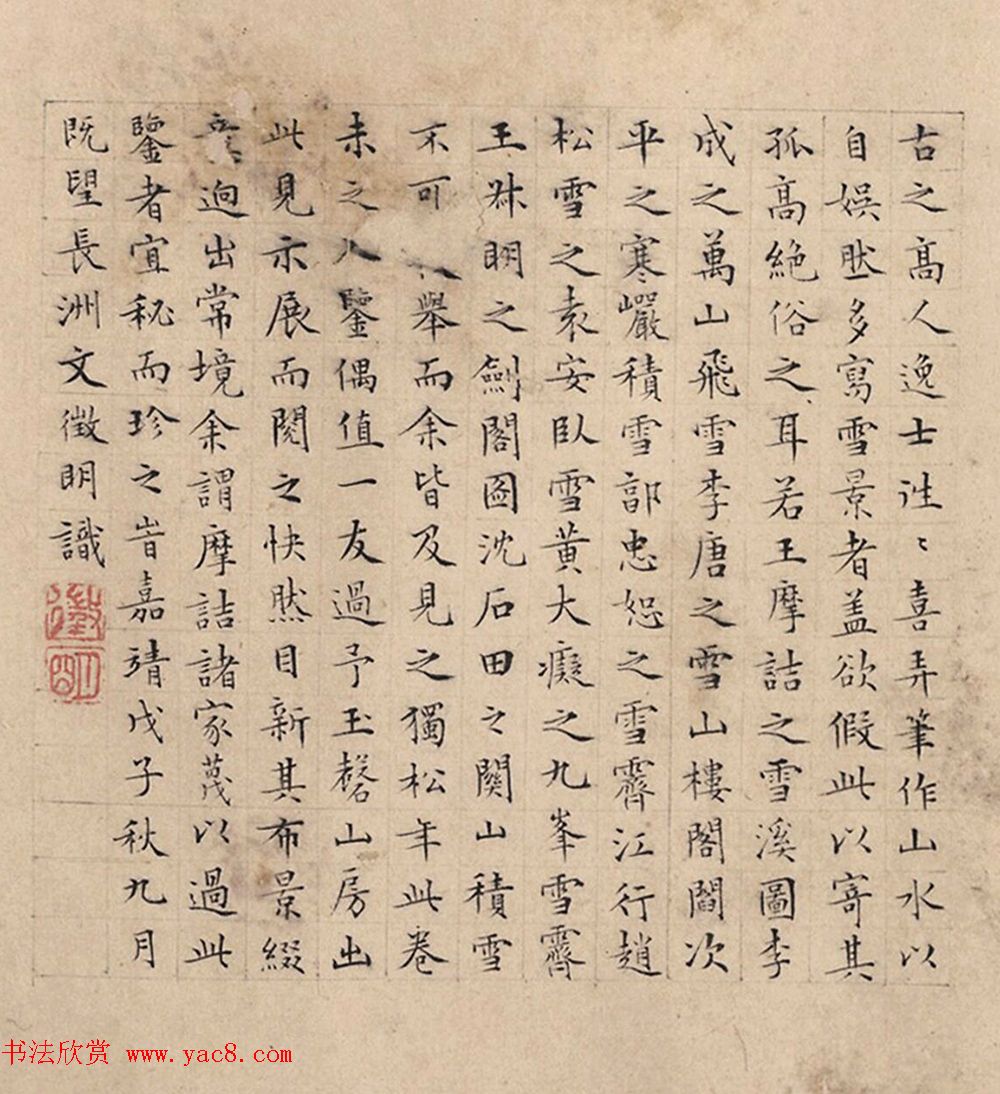 古之高人逸士往〻喜弄筆作山水以
自娛然多寫雪景者盖欲假此以寄其
孤高絶俗之耳若王摩詰之雪溪圖李
成之萬山飛雪李唐之雪山樓閣閻次
平之寒巖積雪郭忠恕之雪霽江行趙
松雪之袁安臥雪黃大癡之九峯雪霽
王叔明之劍閣圖沈石田之關山積雪
不可 舉而余皆及見之獨松年此卷
未之入鑒偶值一友過予玉磬山房出
此見示展而閱之快然目新其布景綴
意迥出常境余謂摩詰諸家蔑以過此
鑒者宜秘而珍之旹嘉靖戊子秋九月
既望長洲文徵明識
徵
明
书法欣赏 www.yac8.com